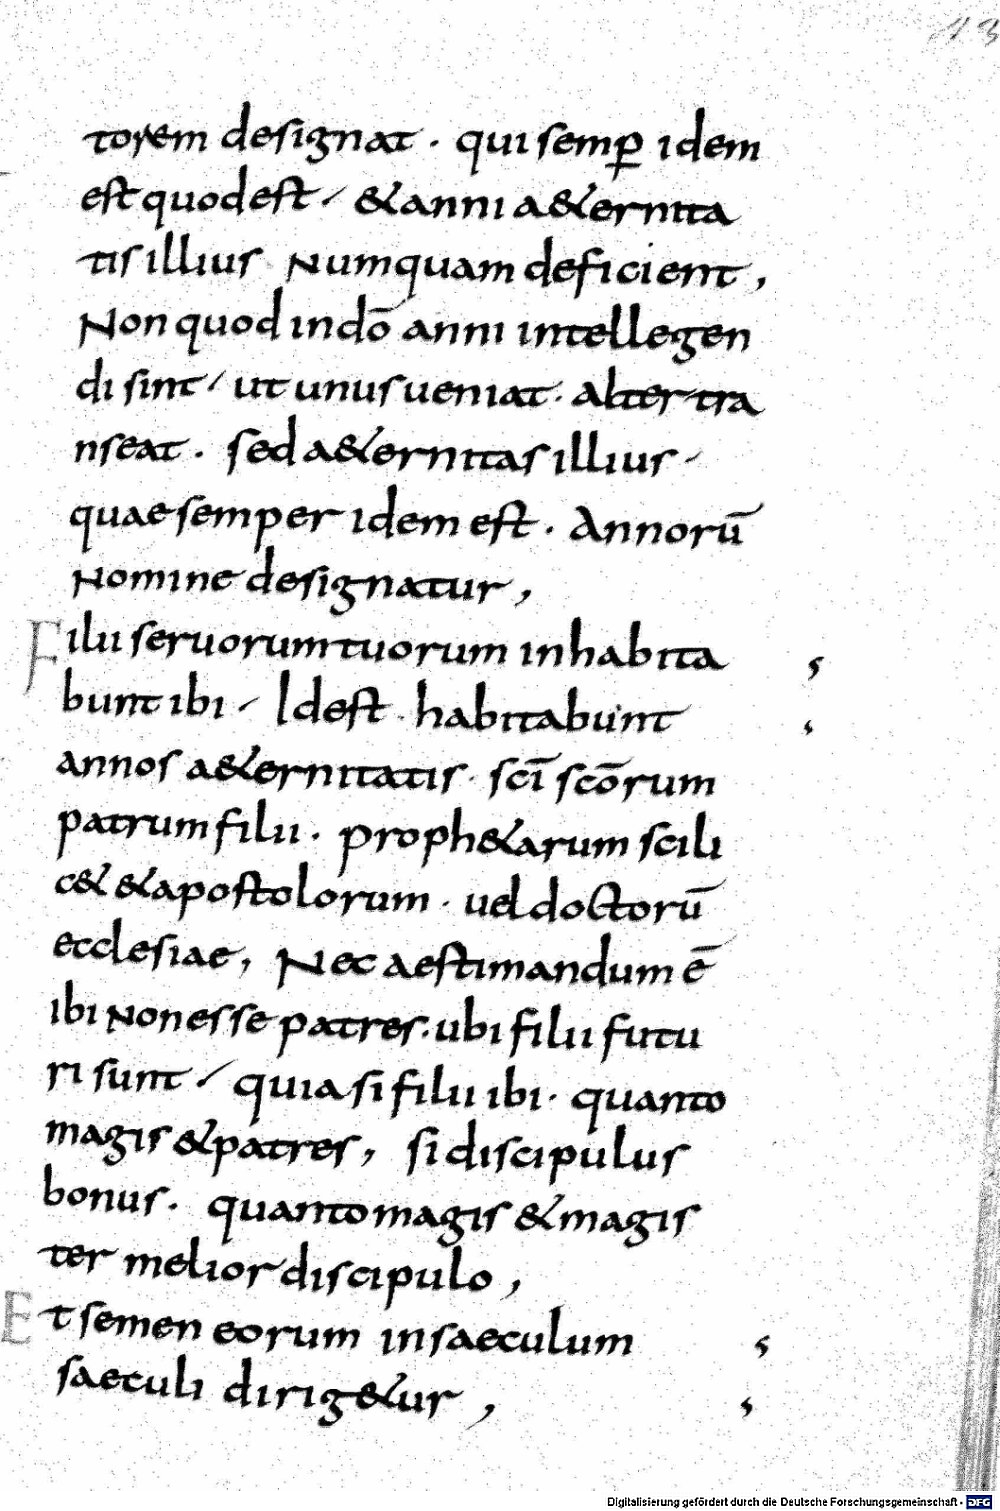 13
torem designat · qui semꝑ idem
est quod est / & anni a&ernita
tis illius Numquam deficient ,
Non quod in dō anni intellegen
di sint / ut unus ueniat · alter tra
nseat · sed a&ernitas illius /
quae semper idem est · Annorū
Nomine designatur ,
Filii seruorum tuorum inhabita
bunt ibi / Id est · habitabunt
annos a&ernitatis · scī scōrum
patrum filii · proph&arum scili
c& & apostolorum · uel doctorū
ecclesiae , Nec aestimandum ē
ibi Non esse patres · ubi filii futu
ri sunt / quia si filii ibi · quanto
magis & patres , si discipulus
bonus · quanto magis & magis
ter melior discipulo ,
Et semen eorum in saeculum
saeculi dirig&ur ,
Digitalisierung gefördert durch die Deutsche Forschungsgemeinschaft - DFG